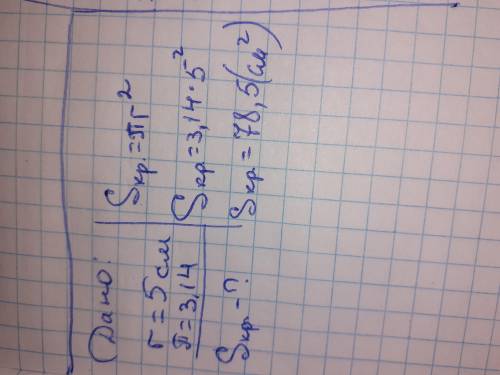 Дано:
r = 5 см
π = 3,14
Sкр - ?
Sкр. = πr²
Sкр = 3,14 · 5²
Sкр = 78,5 (см²)